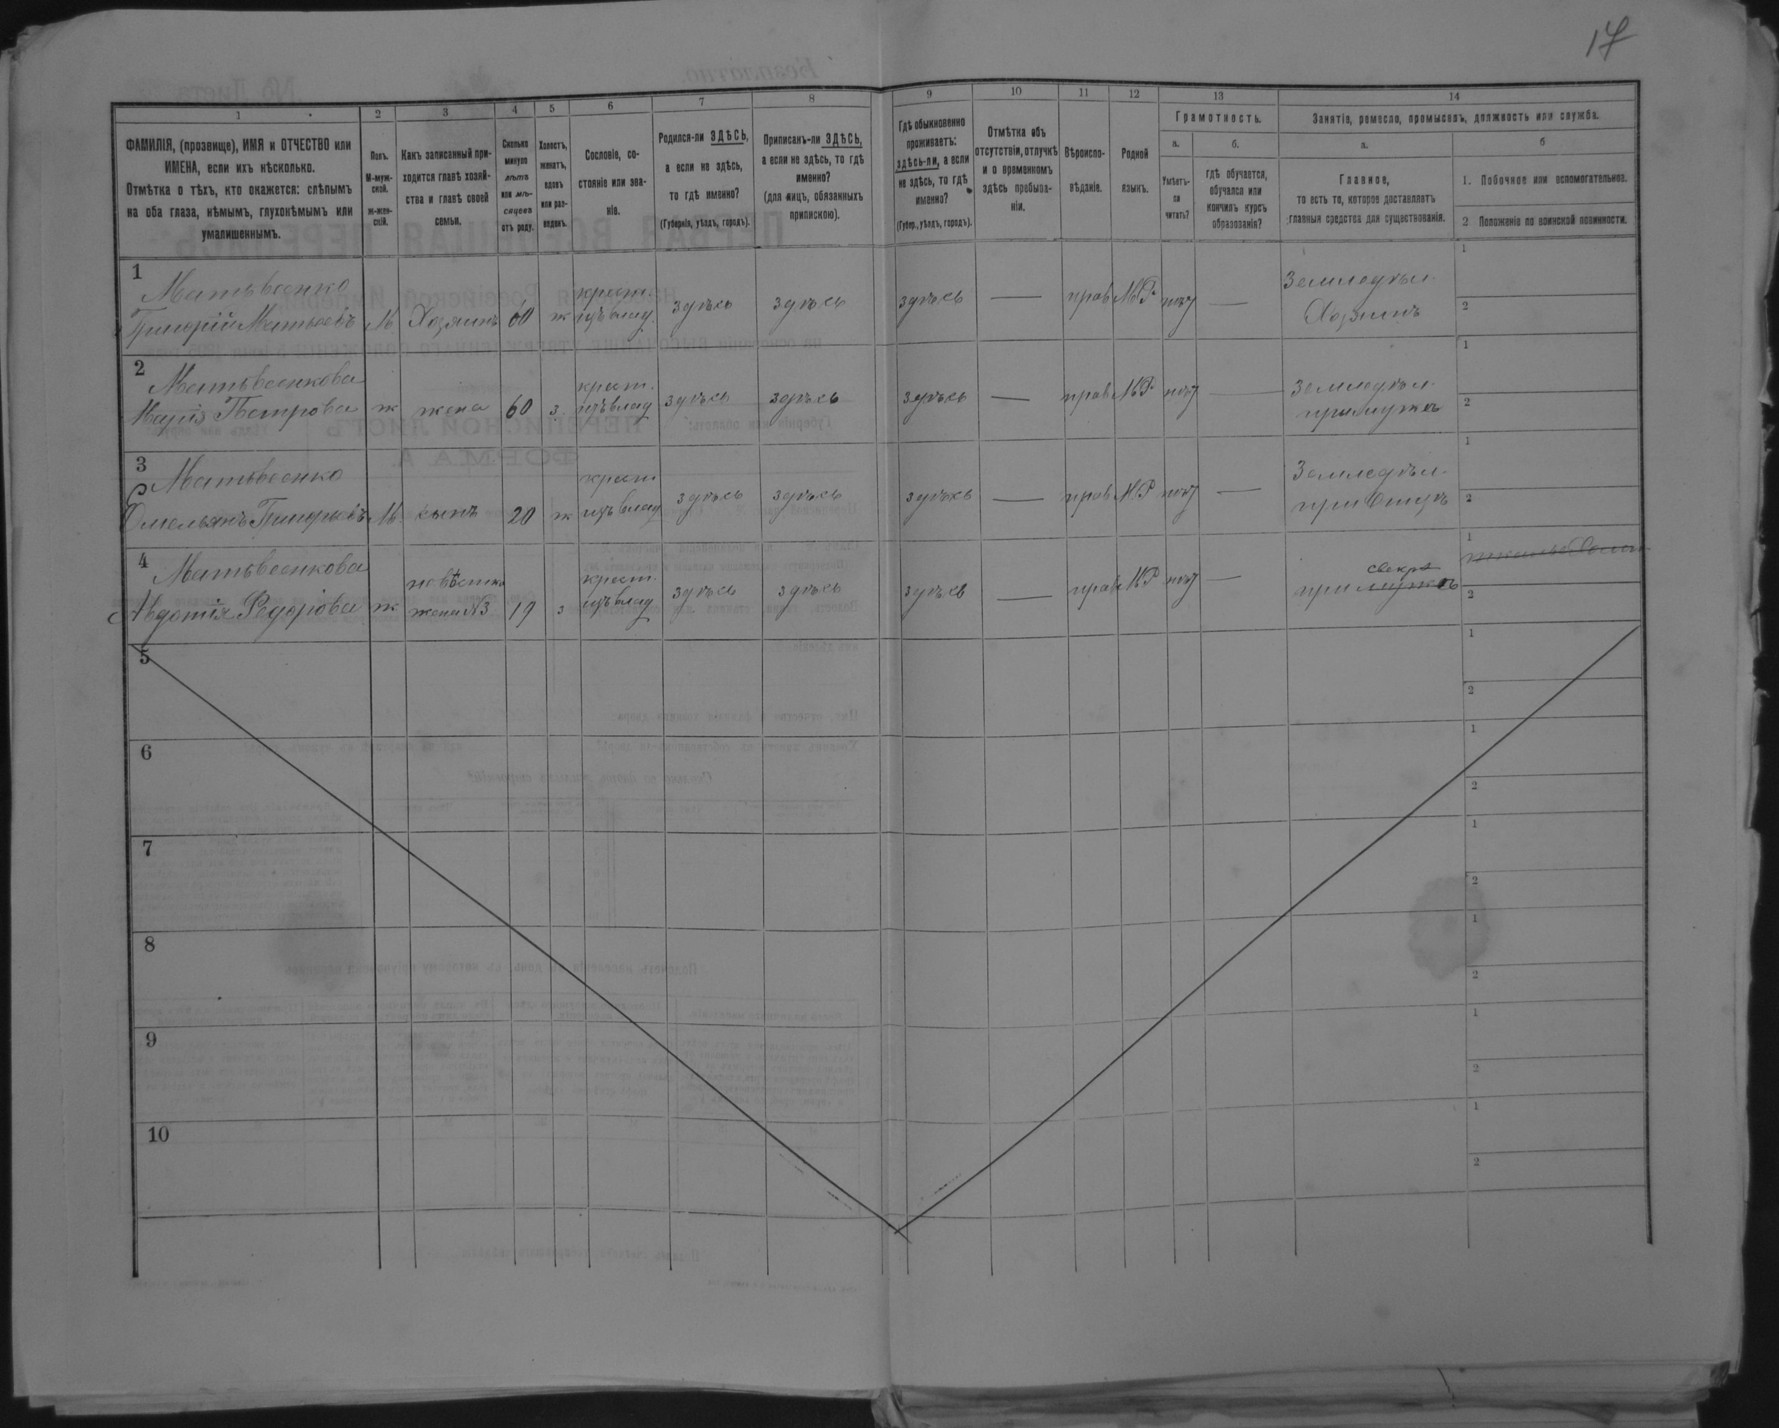 17
1
2
3
4
5
6
7
8
9
10
11
12
13
14
ФАМИЛІЯ, (прозвище), ИМЯ и ОТЧЕСТВО или
ИМЕНА, если ихъ нѣсколько.
Отмѣтка о тѣхъ, кто окажется: слѣпымъ
на оба глаза, нѣмымъ, глухонѣмымъ или
умалишеннымъ.
Полъ.
М-муж-
ской.
ж-жен-
скій.
Какъ записанный при-
ходится главѣ хозяй-
ства и главѣ своей
семьи.
Сколько
минуло
лѣтъ
или мѣ-
сяцевъ
отъ роду.
Холостъ,
женатъ,
вдовъ
или раз-
веденъ.
Сословіе, со-
стояніе или зва-
ніе.
Родился-ли ЗДѢСЬ,
а если не здѣсь,
то гдѣ именно?
(Губернія, уѣздъ, городъ).
Приписанъ-ли ЗДѢСЬ,
а если не здѣсь, то гдѣ
именно?
(для лицъ, обязанныхъ
припискою).
Гдѣ обыкновенно
проживаетъ:
здѣсь-ли, а если
не здѣсь, то гдѣ
именно?
(Губер., уѣздъ, городъ).
Отмѣтка объ
отсутствіи, отлучкѣ
и о временномъ
здѣсь пребыва-
ніи.
Вѣроиспо-
вѣданіе.
Родной
языкъ.
Грамотность.
а.
б.
Умѣетъ-
ли
читать?
гдѣ обучается,
обучался или
кончилъ курсъ
образованія?
Занятіе, ремесло, промыселъ, должность или служба.
а.
б
Главное,
то есть то, которое доставляетъ
главныя средства для существованія.
1. Побочное или вспомогательное.
2 Положеніе по воинской повинности.
1 Матвѣенко крест. Земледѣл. 1
Григорій Матвѣевъ М Хозяинъ 60 ж здѣсь здѣсь здѣсь — прав М.Р. — Хозяинъ 2
2 Матвѣенкова крест. Земледѣл. 1
Марія Петрова ж жена 60 з здѣсь здѣсь здѣсь — прав М.Р. — при мужѣ 2
3 Матвѣенко крест. Земледѣл. 1
Омельянъ Григорьевъ М сынъ 20 ж здѣсь здѣсь здѣсь — прав М.Р — при Отцѣ 2
4 Матвѣенкова невѣстка крест. свекрѣ 1
Авдотія Федорова ж жена №3 19 з здѣсь здѣсь здѣсь — прав М.Р — при мужѣ 2
5
1
2
6
1
2
7
1
2
8
1
2
9
1
2
10
1
2